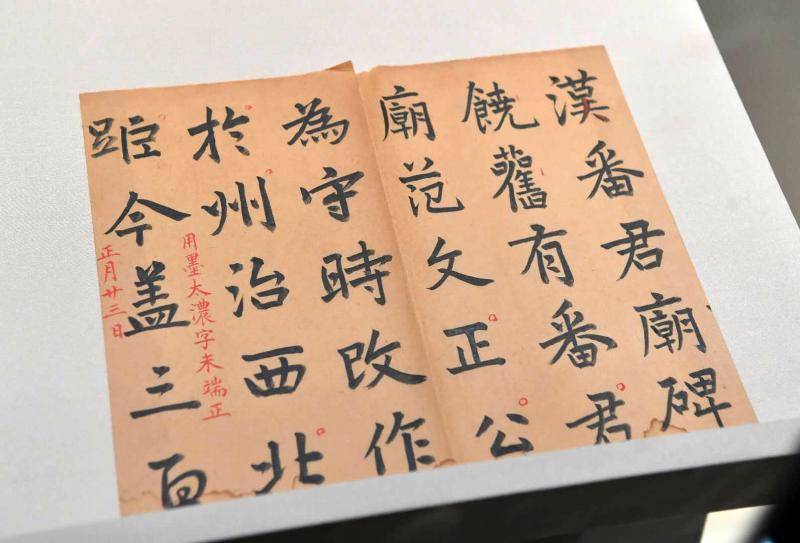 漢番君廟碑
饒舊有番君
廟范文正公
為守時改作
於州治西北
距今蓋三百
用墨太濃字未端正
正月廿三日